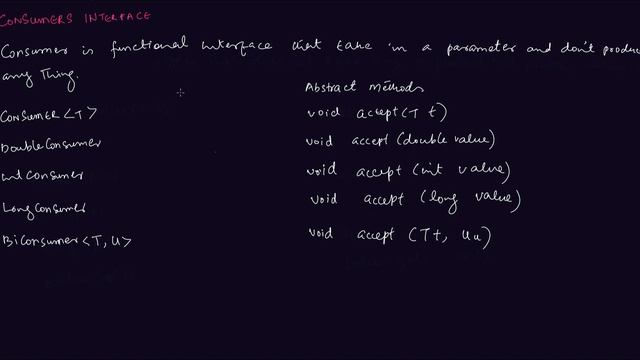 CONSUMERS INTERFACE
Consumer is functional interface that take in a parameter and don't produc
any Thing.
Abstract methods
CONSUMER <T> void accept(T t)
DoubleConsumer void accept (double value)
intConsumer void accept (int value)
LongConsumer void accept (long value)
BiConsumer <T, U> void accept (T t, U u)